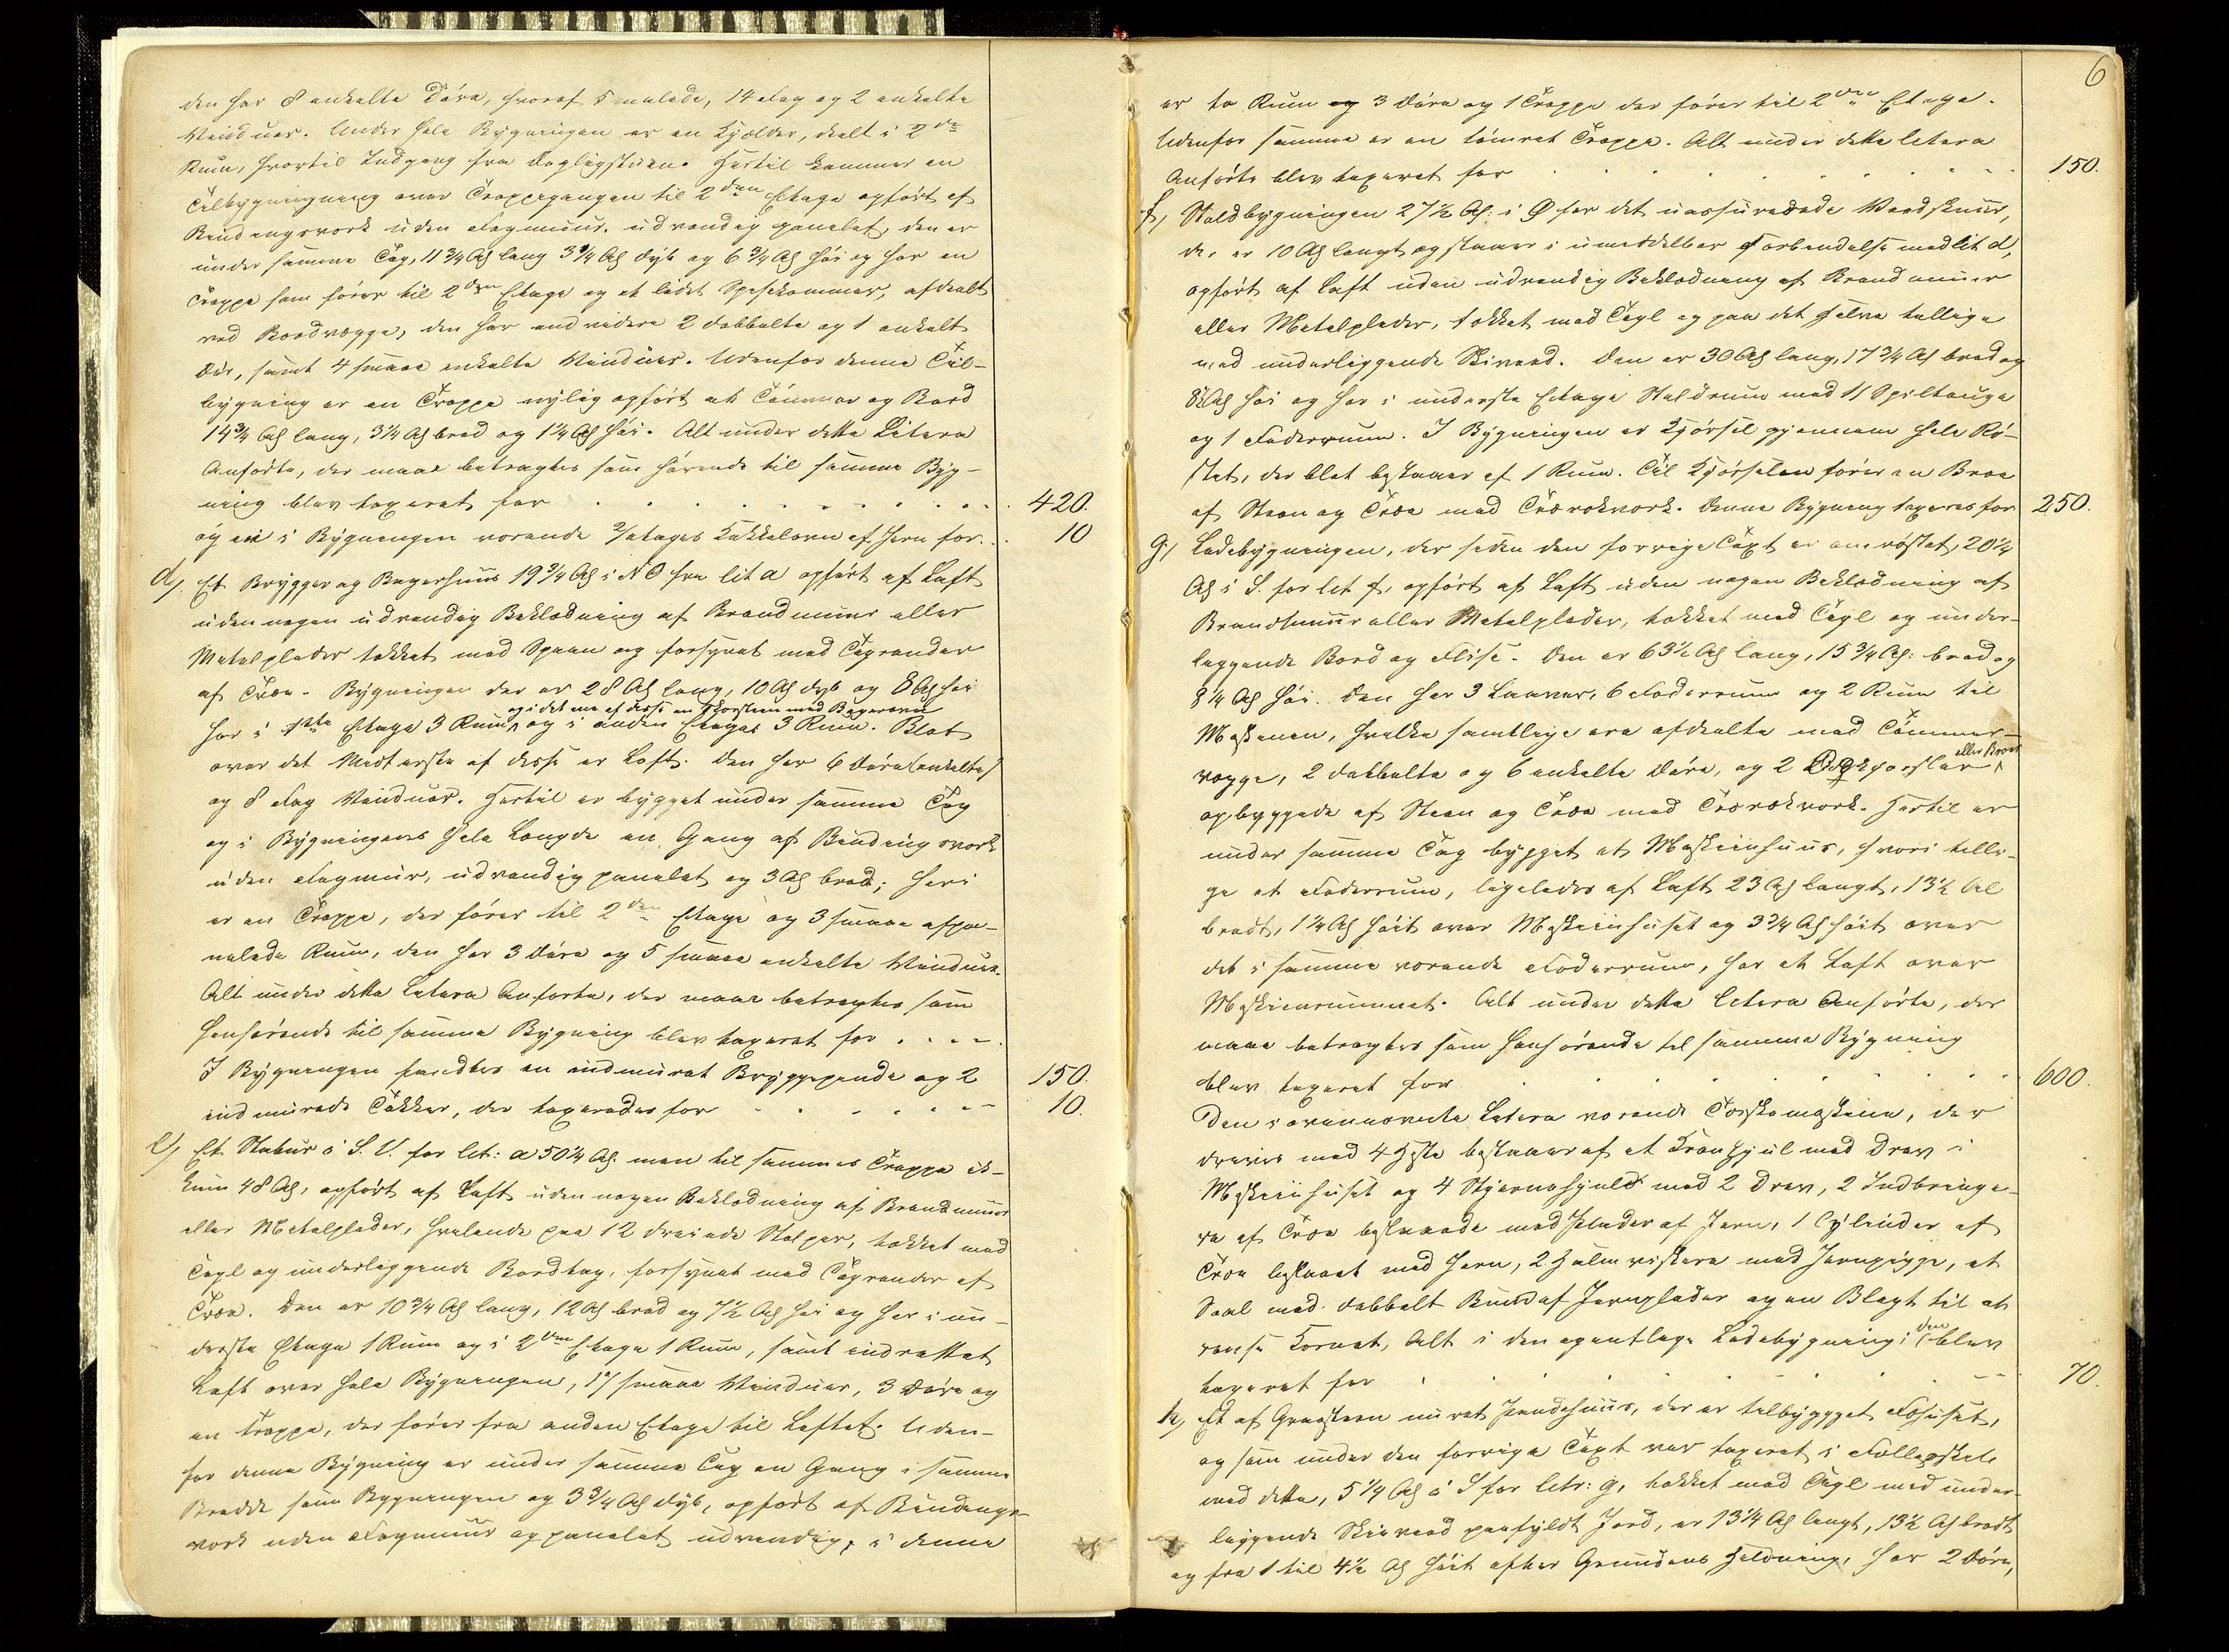 den har 8 enkelte Döre, hvoraf 5 malede, 14 Fag og 2 enkelte
Vinduer. Under hele Bygningen er en Kjælder, deelt i 2de
Rum, hvortil Indgang fra Dagligstuen. Hertil kommer en
Tilbygningning over Trappegangen til 2den Etage opfört af
Bindingsværk uden Fagmuur, udvendig panelet, den er
under samme Tag, 11 3/4 Al lang 3 3/4 Al dyb og 6 3/4 Al höi og har en
Trappe som förer til 2den Etage og et lidet Spisekammer, afdeelt
ved Bordvægge, den har endvidere 2 dobbelte og 1 enkelt
Dör, samt 4 smaae enkelte Vinduer. Udenfor denne Til-
bygning er en Trappe nylig opfört af Tömmer og Bord
14 3/4 Al lang, 3 1/4 Al bred og 1 1/4 Al höi. Alt under dette Litera
Anförte, der maae betragtes som hörende til samme Byg-
ning blev taxeret for . . . . . . . 420.
og en i Bygningen værende 2/etages Kakkelovn af Jern for . . 10
d, Et Brygger og Bagerhuus 19 3/4 Al i NO fra lit a opfört af Laft
uden nogen udvendig Beklædning af Brandmuur eller
Metalplader tækket med Spaan og forsynet med Tagrender
af Træe. Bygningen der er 28 Al lang, 10 Al dyb og 8 Al höi
og i det ene af disse en Skorsteen med Bagerovn
har i 1ste Etage 3 Rum, og i anden Etage 3 Rum. Blot
over det Mederste af disse er Loft. Den har 6 Döre (enkelte)
og 8 Fag Vinduer. Hertil er bygget under samme Tag
og i Bygningens hele Længde en Gang af Bindingsværk
uden Fagmuur, udvendig panelet og 3 Al bred; heri
er en Trappe, der förer til 2den Etage og 3 smaae afpa-
nelede Rum, den har 3 Döre og 5 smaae enkelte Vinduer.
Alt under dette Litera Anförte, der maae betragtes som
henhörende til samme Bygning blev taxeret for . . . .
I Bygningen findtes en indmuret Bryggepande og 2 150.
indmurede Takker, der taxeredes for . . . . . . 10.
e, Et Stabur i S.V. for litr: a 50 1/4 Al: men til sammes Trappe ik-
kuns 48 Al, opfört af Laft uden nogen Beklædning af Brandmuur
eller Metalplader, hvilende paa 12 dreiede Stolper, tækket med
Tegl og underliggende Bordtag, forsynet med Tagrender af
Træe. Den er 10 3/4 Al lang, 12 Al bred og 7 1/2 Al höi og har i un-
derste Etage 1 Rum og i 2den Etage 1 Rum, samt indrettet
Loft over hele Bygningen, 17 smaae Vinduer, 3 Döre og
en Trappe, der förer fra anden Etage til Loftet. Uden-
for denne Bygning er under samme Tag en Gang i samme
Bredde som Bygningen og 3 3/4 Al dyb, opfört af Bindings-
værk uden Fagmuur og panelet udvendig, i denne
6
er to Rum og 3 Döre og 1 Trappe der förer til 2den Etage.
Udenfor samme er en tömret Trappe. Alt under dette litera
Anförte blev taxeret for . . . . . . . . 150.
f, Staldbygningen 27 1/2 Al: i Ø for det uassurerede Vedskuur,
der er 10 Al langt og staaer i umiddelbar Forbindelse med lit d,
opfört af Laft uden udvendig Beklædning af Brandmuur
eller Metalplader, tækket med Tegl og paa det Halve tillige
med underliggende Skived. Den er 30 Al lang, 17 3/4 Al bred og
8 1/2 Al höi og har i underste Etage Staldrum med 11 Spiltauge
og 1 Foderrum. I Bygningen er Kjörsel gjennem hele Rö-
stet, der blot bestaaer af 1 Rum. Til Kjörselen förer en Broe
af Steen og Træe med Trærækværk. Denne Bygning taxeres for 250.
g, Ladebygningen, der siden den forrige Taxt er omröstet, 20 1/4
Al i S. for lit f, opfört af Laft uden nogen Beklædning af
Brandmuur eller Metalplader, tækket med Tegl og under-
liggende Bord og Flise. Den er 63 1/2 Al lang, 15 3/4 Al: bred og
8 1/4 Al höi. Den har 3 Laaver, 6 Foderrum og 2 Rum til
Maskinen, hvilke samtlige ere afdeelte med Tömmer-
eller Broer
vægge, 2 dobbelte og 6 enkelte Döre, og 2
opbyggede af Steen og Træe med Trærækværk. Hertil er
under samme Tag bygget et Maskinhuus, hvori tilli-
ge et Foderrum, ligeledes af Laft 23 Al langt, 13 1/2 Al
bredt, 1 1/4 Al höit over Maskinhuset og 3 3/4 Al höit over
det i samme værende Foderrum, har et Loft over
Maskinrummet. Alt under dette litera Anförte, der
maae betragtes som henhörende til samme Bygning
blev taxeret for . . . . . . . 600.
Den i ovennævnte Litera værende Tærskemaskine, der
drives med 4 Heste bestaaer af et Kronhjul med Drev i
Maskinhuset og 4 Stjernehjuld med 2 Drev, 2 Indbringe-
re af Træe beslaaede med Plader af Jern, 1 Cylinder af
Træe beslaaet med Jern, 2 Halmrystere med Jernpigge, et
Saal med dobbelt Bund af Jernplader og en Blægt til at
rense Kornet, Alt i den egentlige Ladebygning; den blev
taxeret for . . . . . . 70.
h, Et af Graasteen muret Pandehuus, der er tilbyggget Fæhuset,
og som under den forrige Taxt var taxeret i Fællesskab
med dette, 5 1/4 Al i S for litr: g, tækket med Tegl med under-
liggende Skiveed paafyldt Jord, er 13 1/4 Al langt, 13 1/2 Al bredt
og fra 1 til 4 1/2 Al höit efter Grundens Heldning, har 2 Döre,